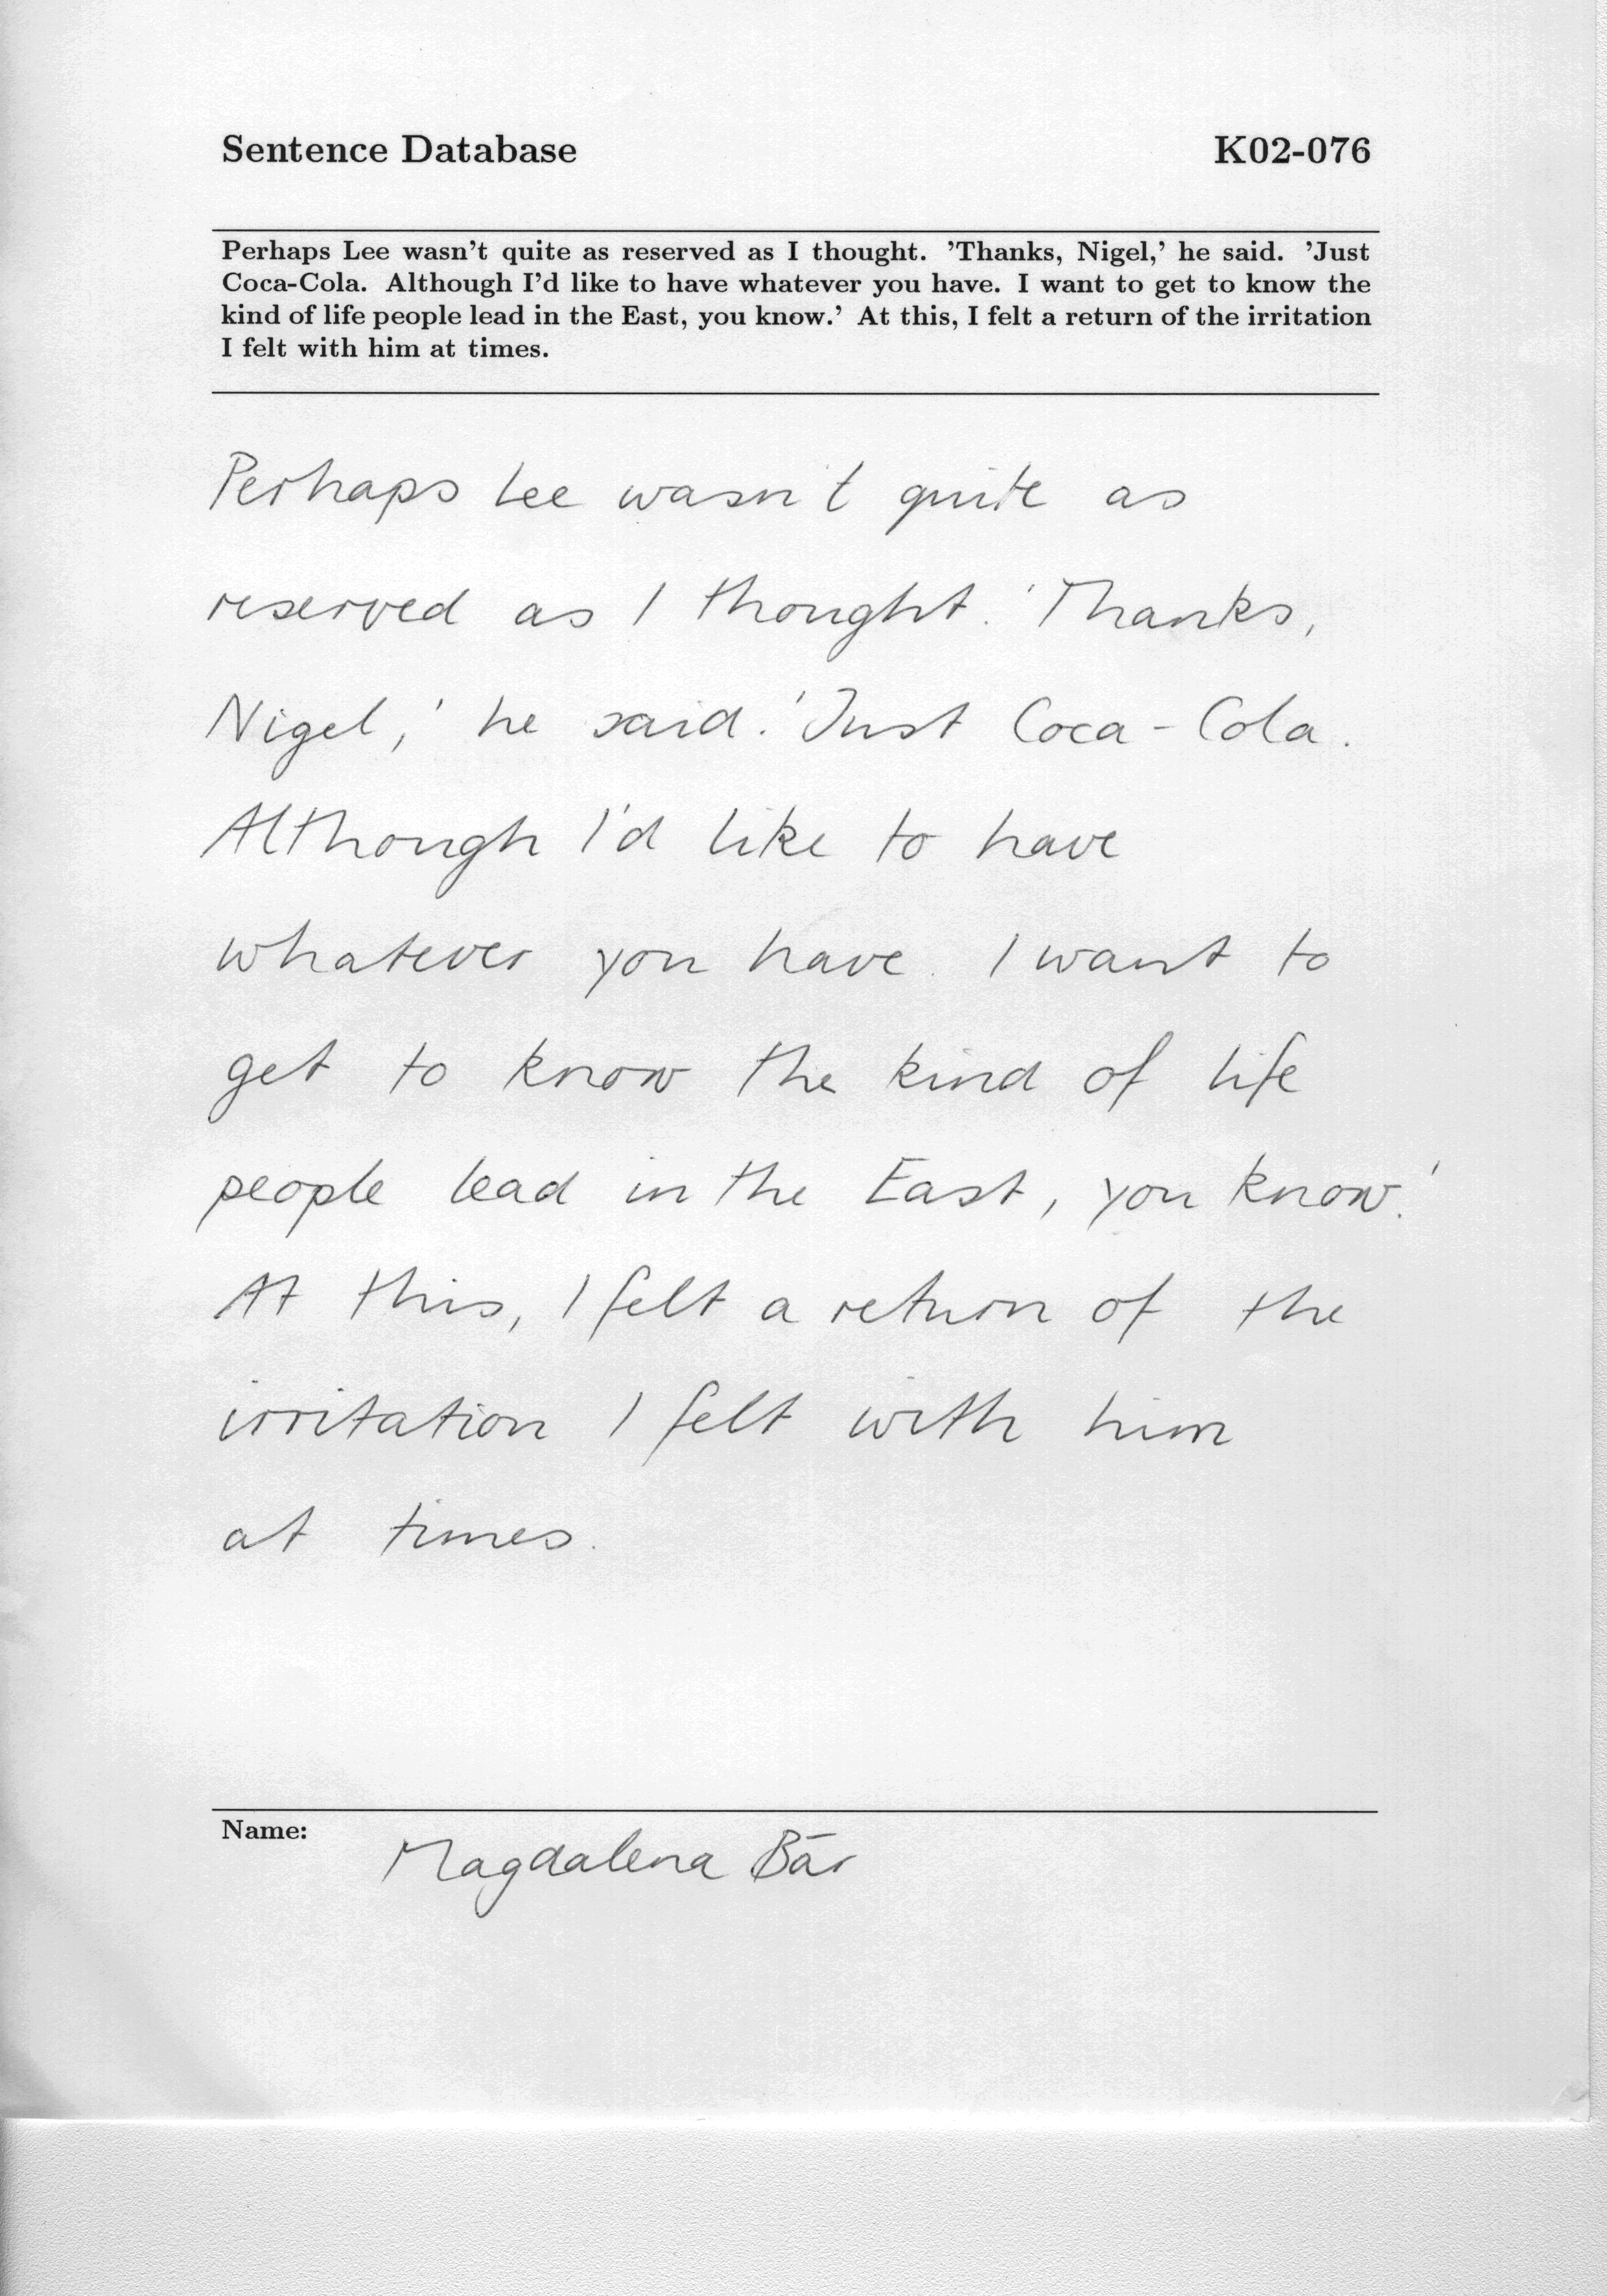 Sentence Database K02-076
Perhaps Lee wasn't quite as reserved as I thought. 'Thanks, Nigel,' he said. 'Just
Coca-Cola. Although I'd like to have whatever you have. I want to get to know the
kind of life people lead in the East, you know.' At this, I felt a return of the irritation
I felt with him at times.
Perhaps Lee wasn't quite as
reserved as I thought. 'Thanks,
Nigel,' he said. 'Just Coca-Cola.
Although I'd like to have
whatever you have. I want to
get to know the kind of life
people lead in the East, you know.'
At this, I felt a return of the
irritation I felt with him
at times.
Name: Magdalena Bär